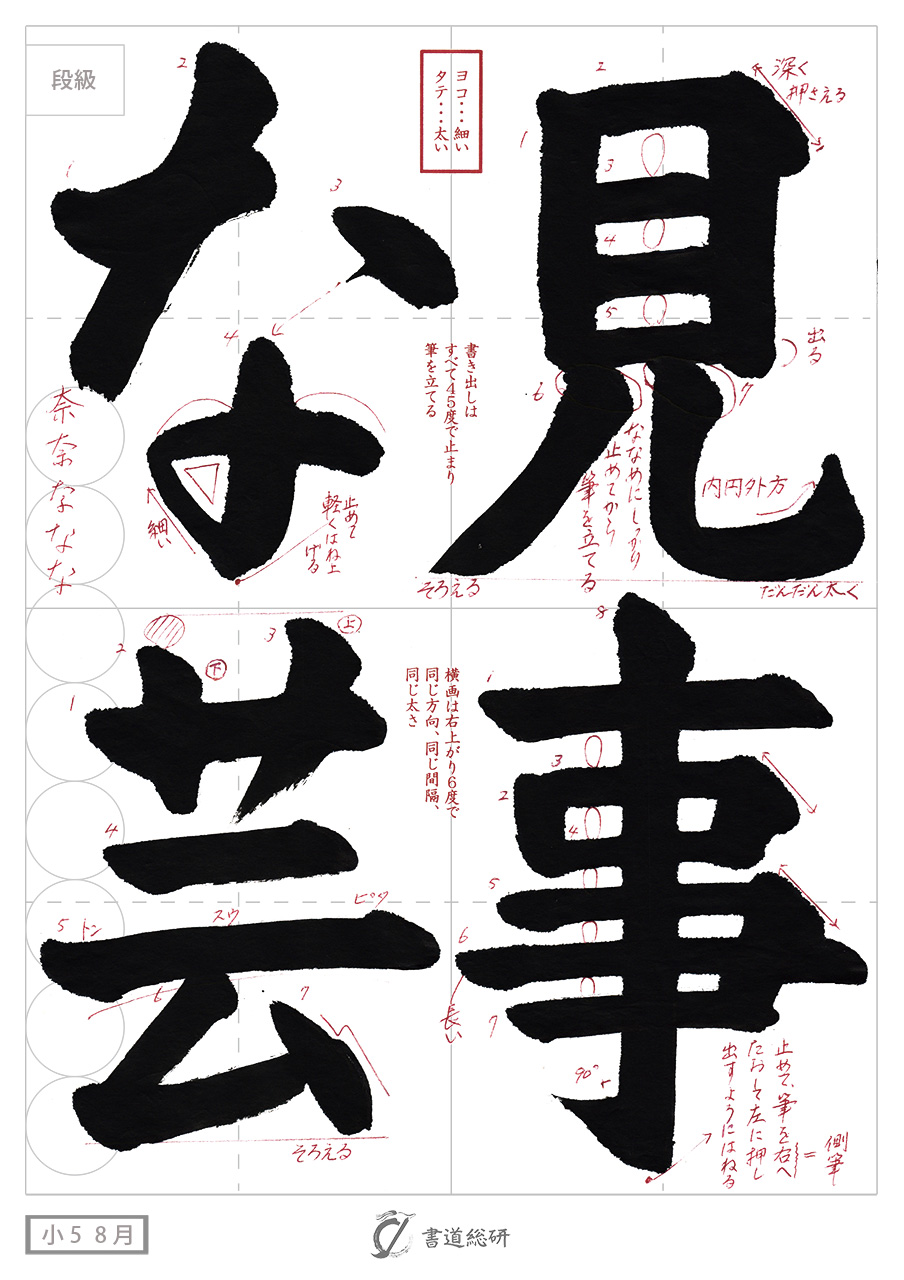 見事
な芸
段級
ヨコ・・・細い
タテ・・・太い
深く
押さえる
出る
書き出しは
すべて45度で止まり
筆を立てる
ななめにしっかり
止めてから
筆を立てる
内円外方
そろえる
だんだん太く
止めて
軽くはね上
げる
細い
奈
奈
な
な
な
上
下
横画は右上がり6度で
同じ方向、同じ間隔、
同じ太さ
トン
スウ
ピタッ
長い
90°
そろえる
止めて、筆を右へ
たおして左に押し
出すようにはねる
=側筆
1
2
3
4
5
6
7
1
2
3
4
5
6
7
8
1
2
3
4
1
2
3
4
5
6
7
小5 8月
書道総研